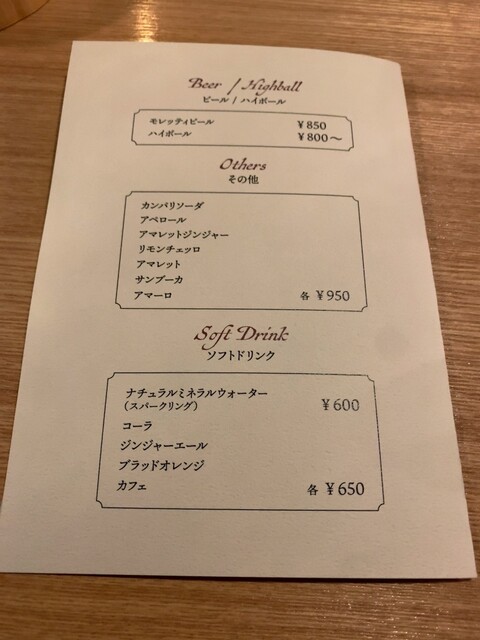 Beer / Highball
ビール / ハイボール
モレッティビール ¥850
ハイボール ¥800〜
Others
その他
カンパリソーダ
アペロール
アマレットジンジャー
リモンチェッロ
アマレット
サンブーカ
アマーロ 各 ¥950
Soft Drink
ソフトドリンク
ナチュラルミネラルウォーター ¥600
（スパークリング）
コーラ
ジンジャーエール
ブラッドオレンジ
カフェ 各 ¥650